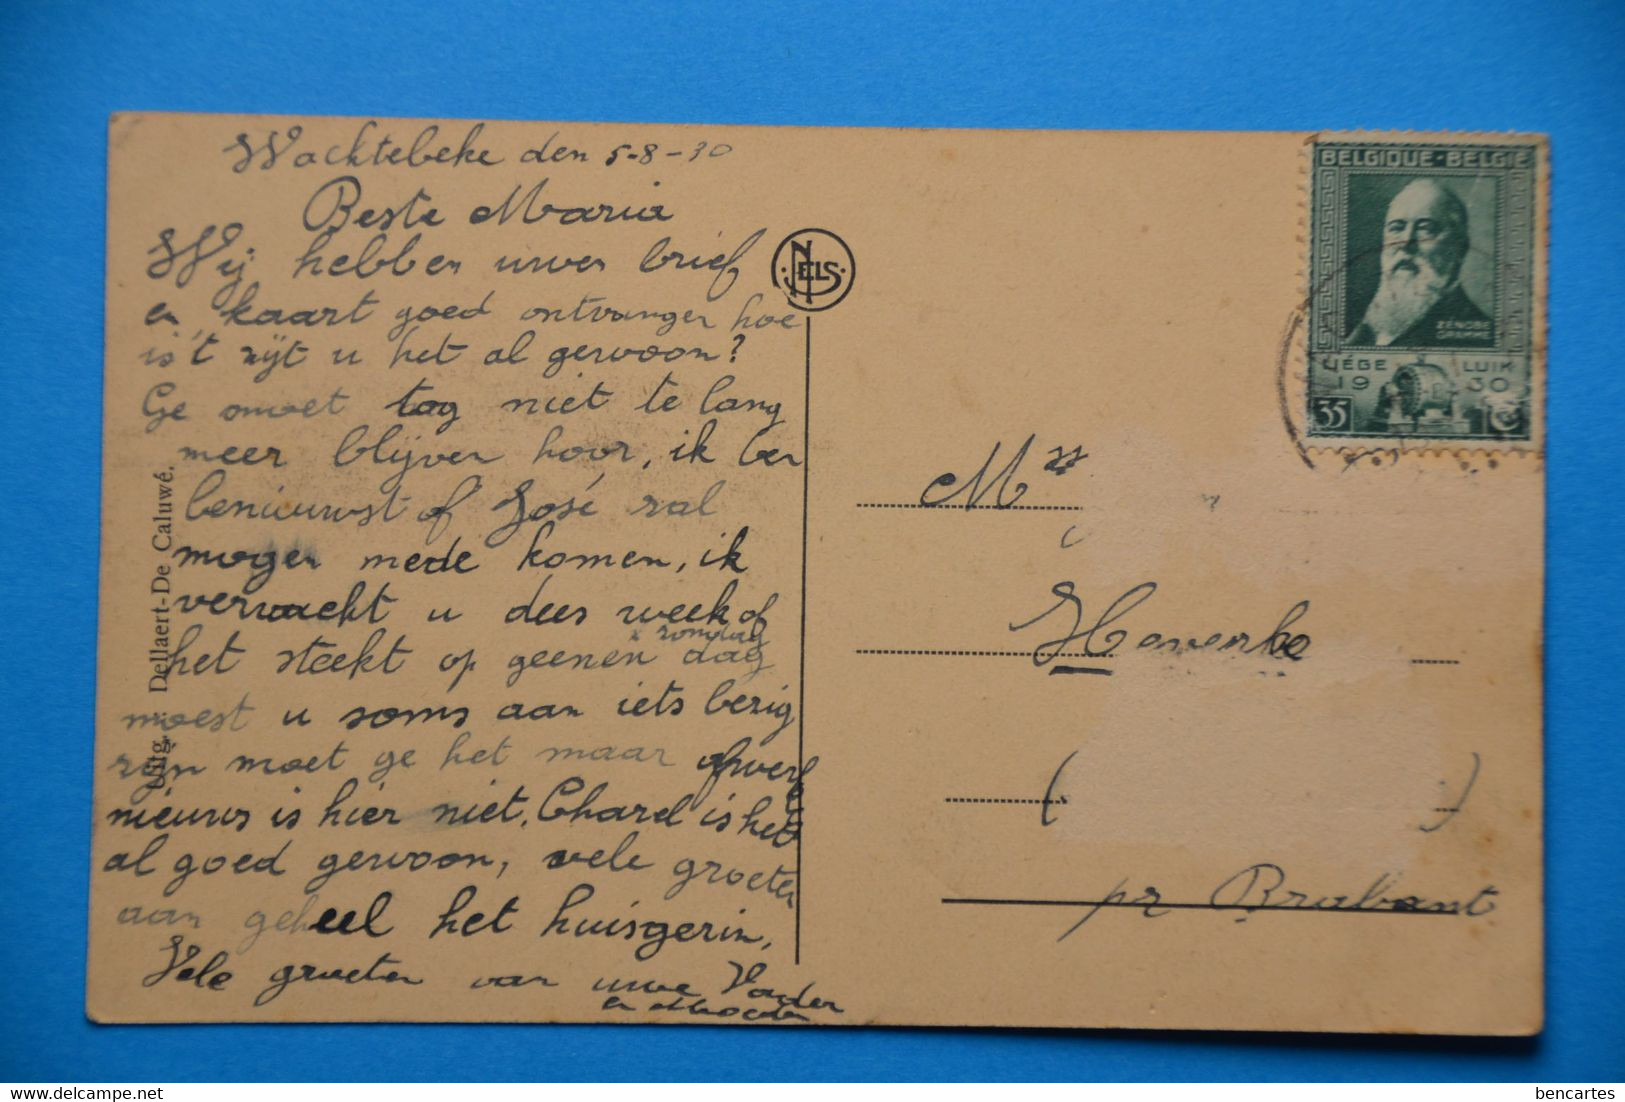 Wachtebeke den 5-8-30
Beste Maria
Wij hebben uwen brief
en kaart goed ontvangen hoe
is't zijt u het al gewoon?
Ge moet tog niet te lang
meer blijven hoor, ik ben
benieuwst of José zal
morgen mede komen, ik
verwacht u dees week of
x zondag
het steekt op geenen dag
moest u soms aan iets bezig
zijn moet ge het maar afwerken
nieuws is hier niet. Charel is het
al goed gewoon, vele groeten
aan geheel het huisgezin.
Vele groeten van uwe Vader
en Moeder
NELS
Uitg. Dellaert-De Caluwé.
BELGIQUE-BELGIE
ZENOBE
GRAMME
LIÉGE LUIK
1930
35 C
M
Haverke
(
)
pr Brabant
bencartes